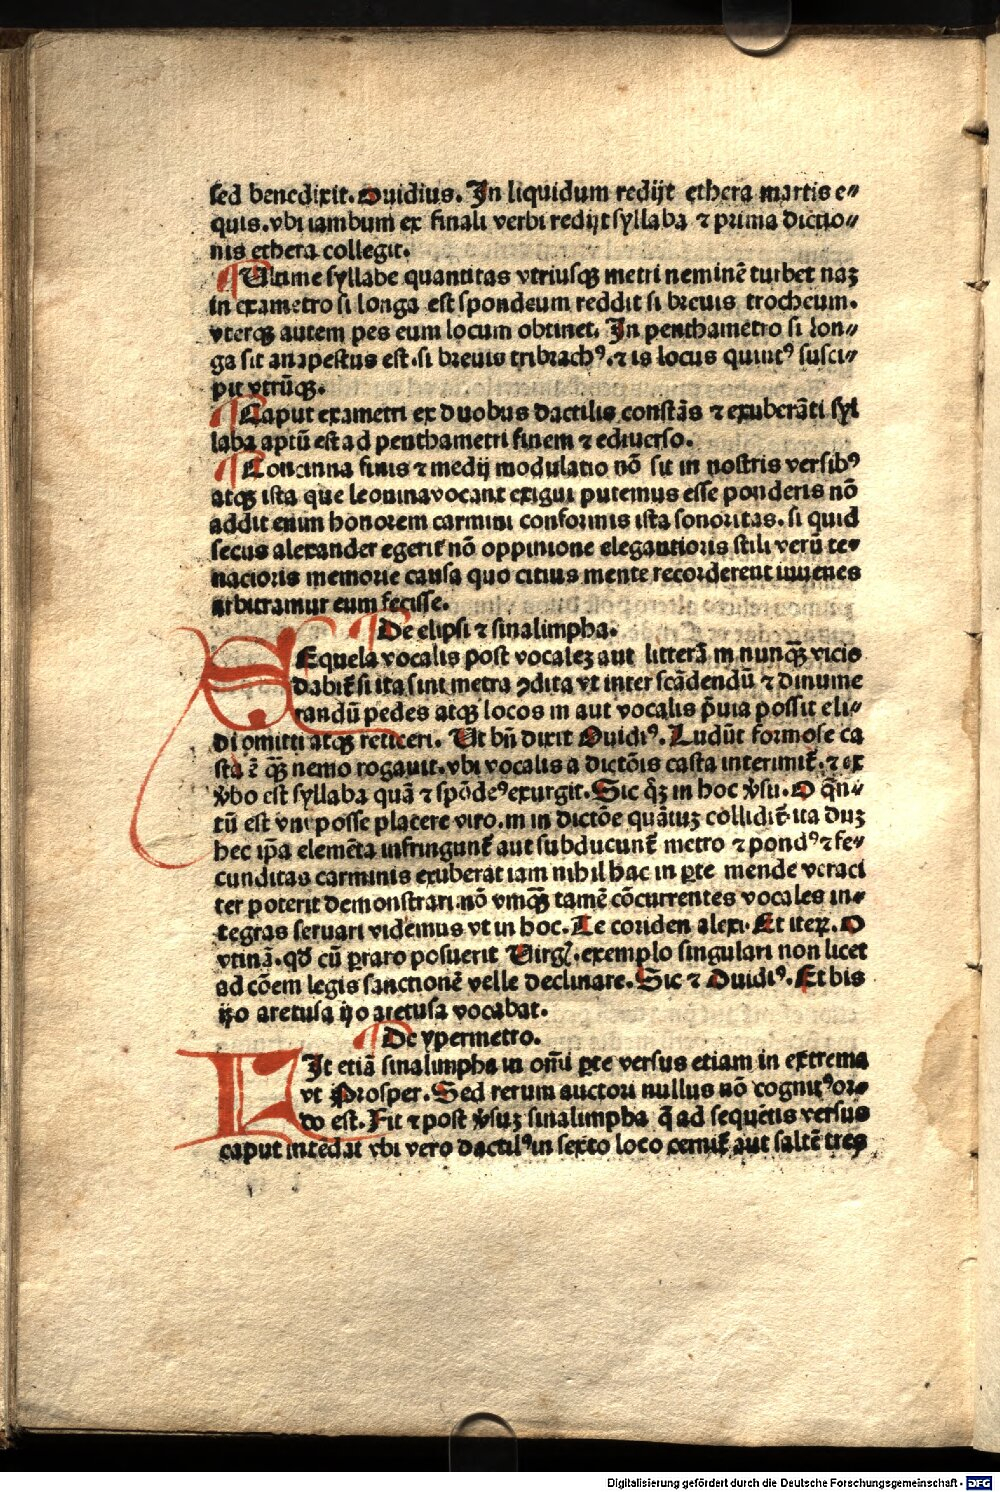 sed benedixit. Ouidius. In liquidum redijt ethera martis e⸗
quis. vbi iambum ex finali verbi redijt syllaba ⁊ prima dictio⸗
nis ethera collegit.
¶ Ultime syllabe quantitas vtriusqꝫ metri neminē turbet naꝫ
in exametro si longa est spondeum reddit si breuis trocheum.
vterqꝫ autem pes eum locum obtinet. In penthametro si lon⸗
ga sit anapestus est. si breuis tribrachꝰ. ⁊ is locus quintꝰ susci⸗
pit vtrūqꝫ.
¶ Caput exametri ex duobus dactilis constās ⁊ exuberāti syl
laba aptū est ad penthametri finem ⁊ ediuerso.
¶ Concinna finis ⁊ medij modulatio nō sit in nostris versibꝰ
atqꝫ ista que leonina vocant exigui putemus esse ponderis nō
addit enim honorem carmini conformis ista sonoritas. si quid
secus alexander egerit nō oppinione elegantioris stili verū te⸗
nacioris memorie causa quo citius mente recorderent iuuenes
arbitramur eum fecisse.
¶ De elipsi ⁊ sinalimpha.
SEquela vocalis post vocaleꝫ aut litterā m nunqꝫ̄ vicis
dabit̄ si ita sint metra ꝯdita vt inter scādendū ⁊ dinume
randū pedes atqꝫ locos m aut vocalis p̄uia possit eli⸗
di omitti atqꝫ reticeri. Ut bn̄ dixit Ouidiꝰ. Ludūt formose ca
sta ē qꝫ̄ nemo rogauit. vbi vocalis a dictōis casta interimit̄. ⁊ ex
v̄bo est syllaba quā ⁊ spōdeꝰ exurgit. Sic q̄ꝫ in hoc v̄su. O qn̄⸗
tū est vni posse placere viro. m in dictōe quātuꝫ collidit̄ ita duꝫ
hec ip̄a elemēta infringunt̄ aut subducunt̄ metro ⁊ pondꝰ ⁊ fe⸗
cunditas carminis exuberat iam nihil hac in ꝑte mende veraci
ter poterit demonstrari. nō vmqꝫ̄ tamē cōcurrentes vocales in⸗
tegras seruari videmus vt in hoc. Te coriden alexi. Et iteꝝ. O
vtinā. qđ cū ꝑraro posuerit Uirgl̄. exemplo singulari non licet
ad cōem legis sanctionē velle declinare. Sic ⁊ Ouidiꝰ. Et bis
ijo aretusa ijo aretusa vocabat.
¶ De ypermetro.
FIt etiā sinalimpha in om̄i ꝑte versus etiam in extrema
vt Prosper. Sed rerum auctori nullus nō cognitꝰ or⸗
do est. Fit ⁊ post v̄suꝫ sinalimpha q̄ ad sequētis versus
caput intēdat vbi vero dactilꝰ in sexto loco cernit̄ aut saltē tres
Digitalisierung gefördert durch die Deutsche Forschungsgemeinschaft - DFG